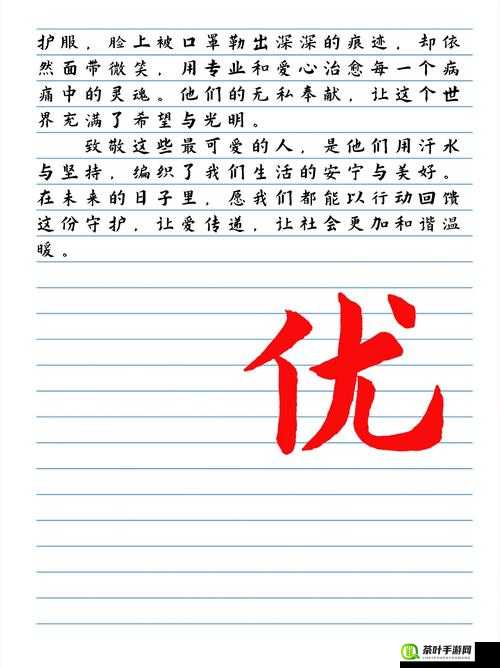 护服，脸上被口罩勒出深深的痕迹，却依
然面带微笑，用专业和爱心治愈每一个病
痛中的灵魂。他们的无私奉献，让这个世
界充满了希望与光明。
致敬这些最可爱的人，是他们用汗水
与坚持，编织了我们生活的安宁与美好。
在未来的日子里，愿我们都能以行动回馈
这份守护，让爱传递，让社会更加和谐温
暖。
优
茶叶手游网